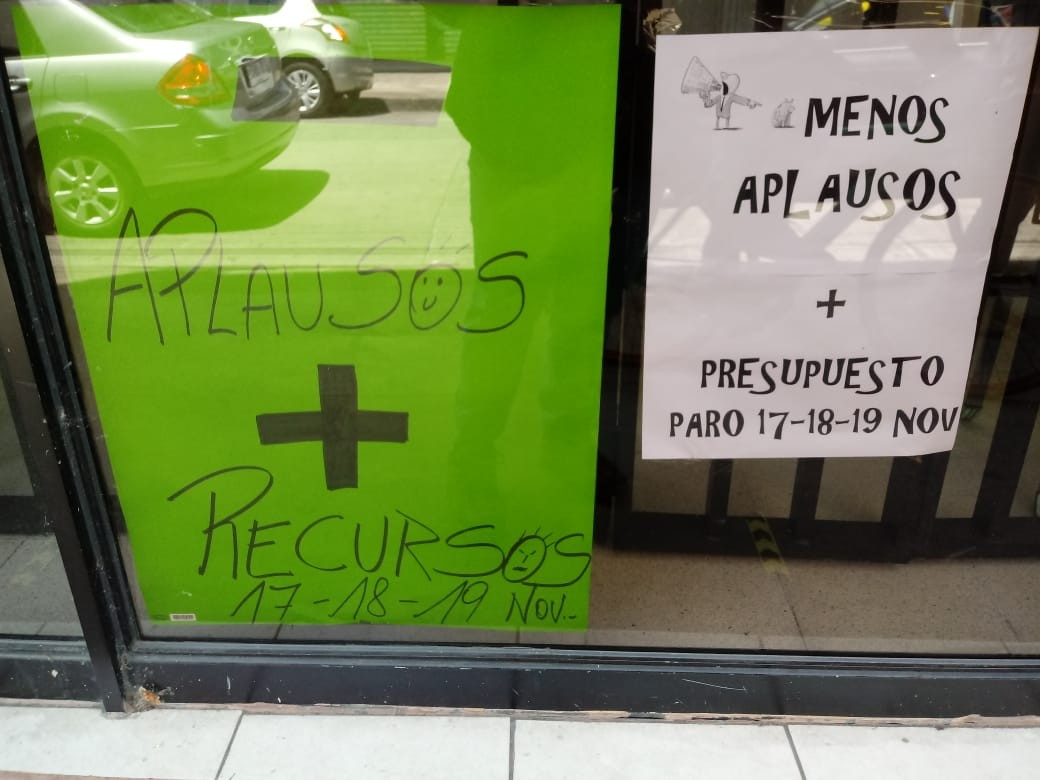 APLAUSOS
+
RECURSOS
17-18-19 NOV.-
MENOS
APLAUSOS
+
PRESUPUESTO
PARO 17-18-19 NOV